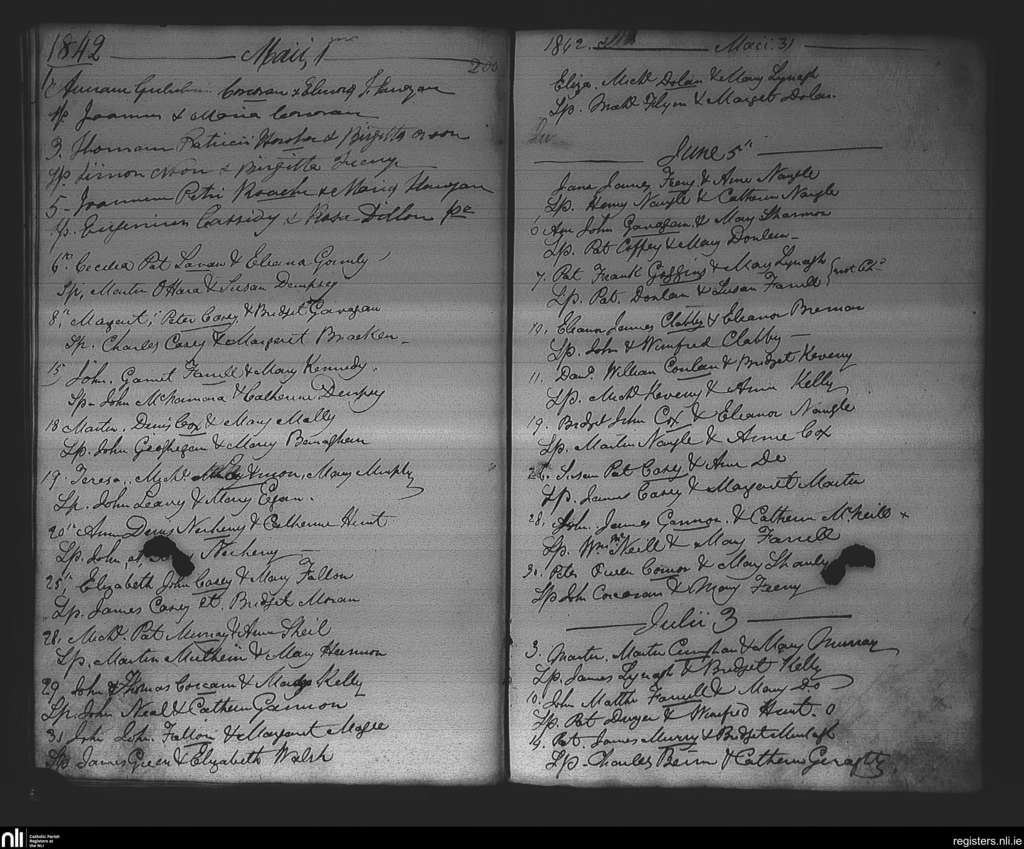 1842 Maii, 1mo
200
Annam Corcoran & Elenora Finnegan
Sp Joannes & Maria Corcoran
3. Thomam Patricii & Birgitta
Sp. Simon & Birgitta Feeny.
5 - Joannem Petri Roache & Maria
Sp. Eugenius Cassidy & Rose Dillon
6th Cecelia Pat Lavan & Eleana Gormly
Sp, Martin O'Hara & Susan Dempsey
8th Margerit; Peter Casey & Bridget Gavagan
Sp. Charles Casey & Margaret Bracken
15 John. Garret Farrell & Mary Kennedy.
Sp. John McNamara & Catherine Dempsey
18 Martin. Denis Cox & Mary Mally
Sp. John Geoghegan & Marey
19. Teresa, Michl Mary Murphy
Sp. John Leavy & Mary Egan.
20th Ann Denis Nerheny & Catherine Hunt
Sp. John Nerheny
25th, Elizabeth John Casey & Mary Fallon
Sp. James Casey et. Bridget Moran
28, Michl Pat Murray & Anne Sheil
Sp. Martin & Mary
29 John & Thomas Corcoran & Mary Kelly
Sp. John Neal & Catherin Gannon
31 John John. Fallon & Margaret Magee
Sp James Green & Elizabeth Walsh
1842. Maii. 31
Eliza. Michl Dolan & Mary Lynagh
Sp. Flynn & Margret Dolan
June 5th
Jane James Feeny & Anne Naugle
Sp. Henry Naugle & Catherin Naugle
6 Ann John Gavagan & May Shannon
Sp. Pat Coffey & Mary Donlan
7. Pat Frank Goggins & May Lynagh
Sp. Pat. Donlan & Susan Farrell
10. Eleanor James Clabby & Eleanor Brennan
Sp. John & Winifred Clabby
11. Danl. William Conlan & Bridget Keveny
Sp. Michl Keveny & Anne Kelly
19. Bridget John Cox & Eleanor Naugle
Sp. Martin Naugle & Anne Cox
26. Susan Pat Casey & Ann Do
Sp. James Casey & Margaret Martin
28. John. James Gannon. & Catherin McNeill x
Sp. Wm McNeill & May Farrell
30. Peter Owen Connor & May Shanly
Sp John Corcoran & Mary Feeny
Julii 3
3. Martin. Martin & Mary Murray
Sp. James Lynagh & Bridget Kelly
10. John Matthew Farrell & Mary Do
Sp. Pat Dwyer & Winifred Hunt. 0
14. Pat. James Murry & Bridget
Sp. Charles Beirn & Catherin Geraghty
nli Catholic Parish
Registers at
the NLI
registers.nli.ie